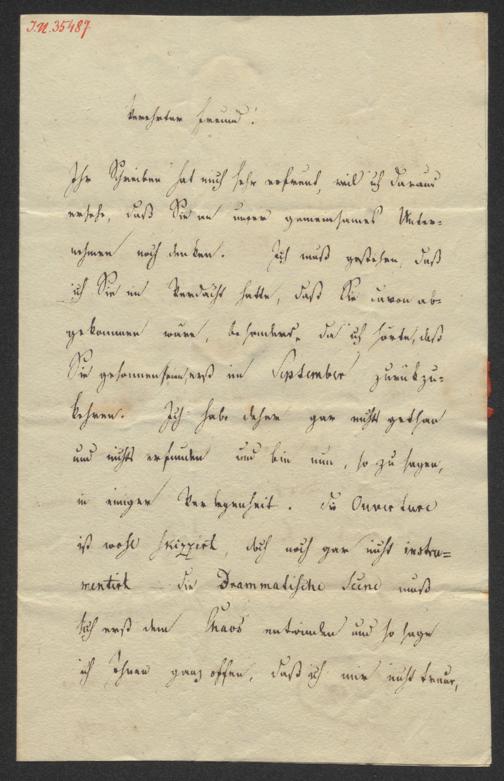 I.N. 35487
Verehrter Freund!
Ihr Schreiben hat mich sehr erfreut, weil ich daraus
ersehe, daß Sie an unser gemeinsames Unter=
nehmen noch denken. Ich muß gestehen, daß
ich Sie im Verdacht hatte, daß Sie davon ab=
gekommen wären, besonders, da ich hörte, daß
Sie gesonnen seyn erst im September zurückzu=
kehren. Ich habe daher gar nichts gethan
und nichts erfunden und bin nun, so zu sagen,
in einiger Verlegenheit. Die Ouverture
ist wohl skizzirt, doch noch gar nicht instru=
mentirt die Drammatische Scene muß
sich erst dem Chaos entwinden und so sage
ich Ihnen ganz offen, daß ich mir nicht traue,